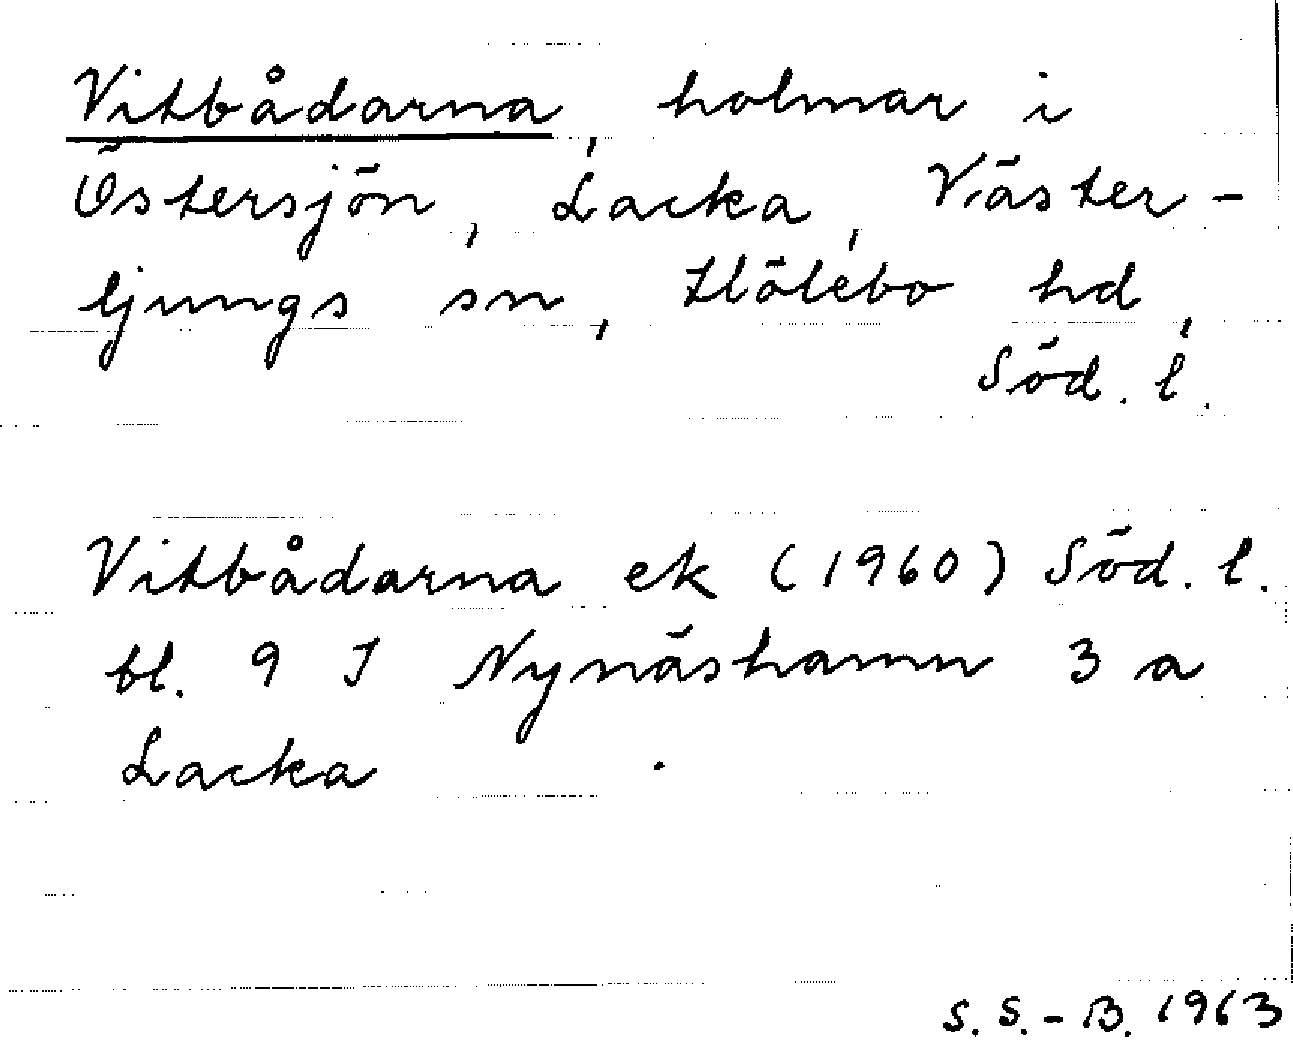 Vitbådarna, holmar i
Östersjön, Lacka, Väster-
ljungs sn, Hölebo hd,
Söd. l.
Vitbådarna ek (1960) Söd. l.
bl. 9 I Nynäshamn 3 a
Lacka
S. S.-B. 1963